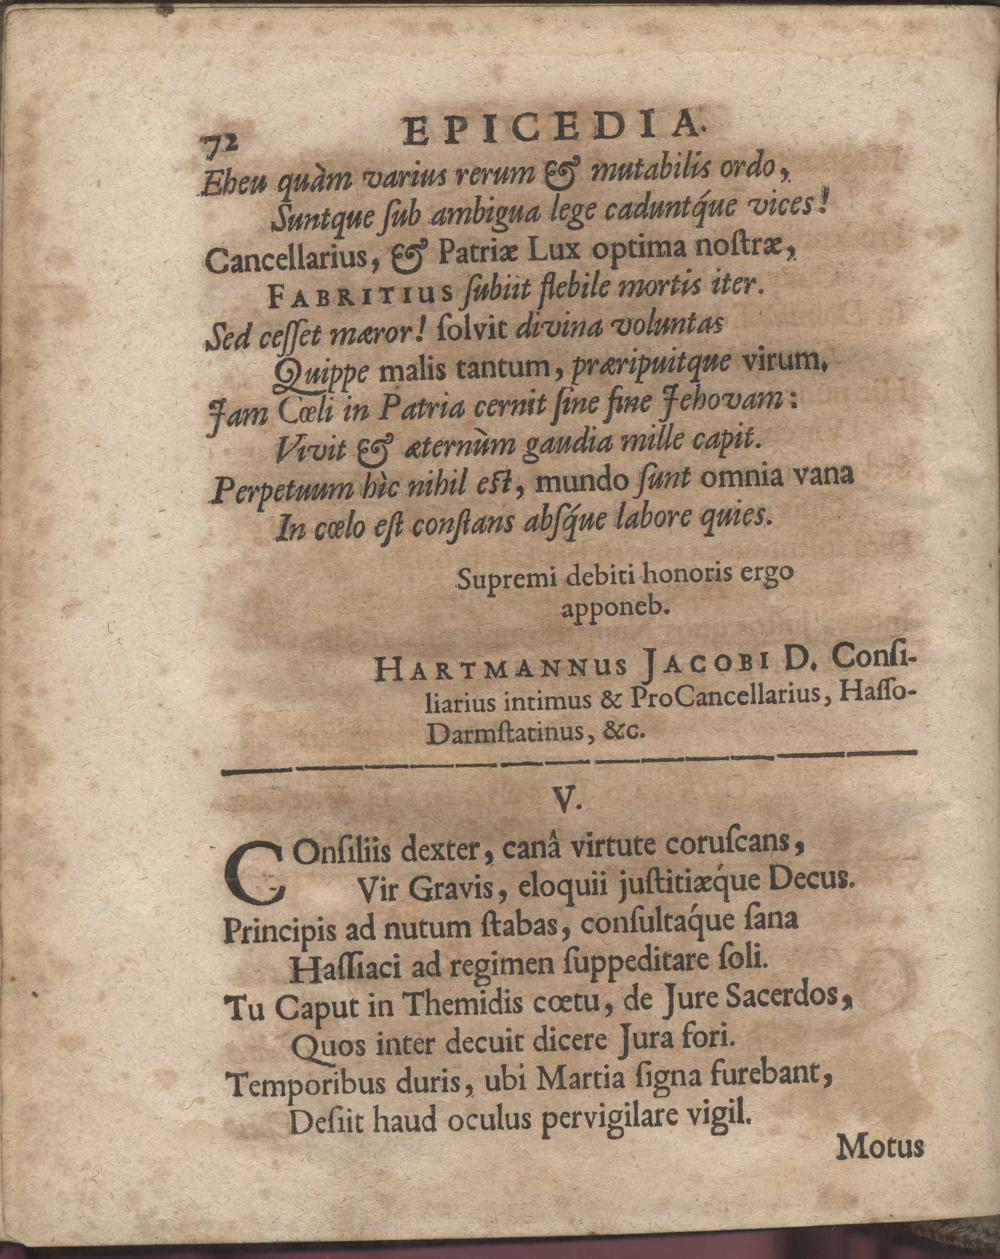 72 EPICEDIA.
Eheu quàm varius rerum & mutabilis ordo,
Suntque ſub ambigua lege caduntq́ue vices!
Cancellarius, & Patriæ Lux optima noſtræ,
FABRITIUS ſubiit flebile mortis iter.
Sed ceſſet mæror! ſolvit divina voluntas
Quippe malis tantum, præripuitque virum,
Jam Cœli in Patria cernit ſine fine Jehovam:
Vivit & æternùm gaudia mille capit.
Perpetuum hìc nihil eſt, mundo ſunt omnia vana
In cœlo eſt conſtans abſq́ue labore quies.
Supremi debiti honoris ergo
apponeb.
HARTMANNUS JACOBI D. Conſi-
liarius intimus & ProCancellarius, Haſſo-
Darmſtatinus, &c.
V.
COnſiliis dexter, canâ virtute coruſcans,
Vir Gravis, eloquii juſtitiæq́ue Decus.
Principis ad nutum ſtabas, conſultaq́ue ſana
Haſſiaci ad regimen ſuppeditare ſoli.
Tu Caput in Themidis cœtu, de Jure Sacerdos,
Quos inter decuit dicere Jura fori.
Temporibus duris, ubi Martia ſigna furebant,
Deſiit haud oculus pervigilare vigil.
Motus